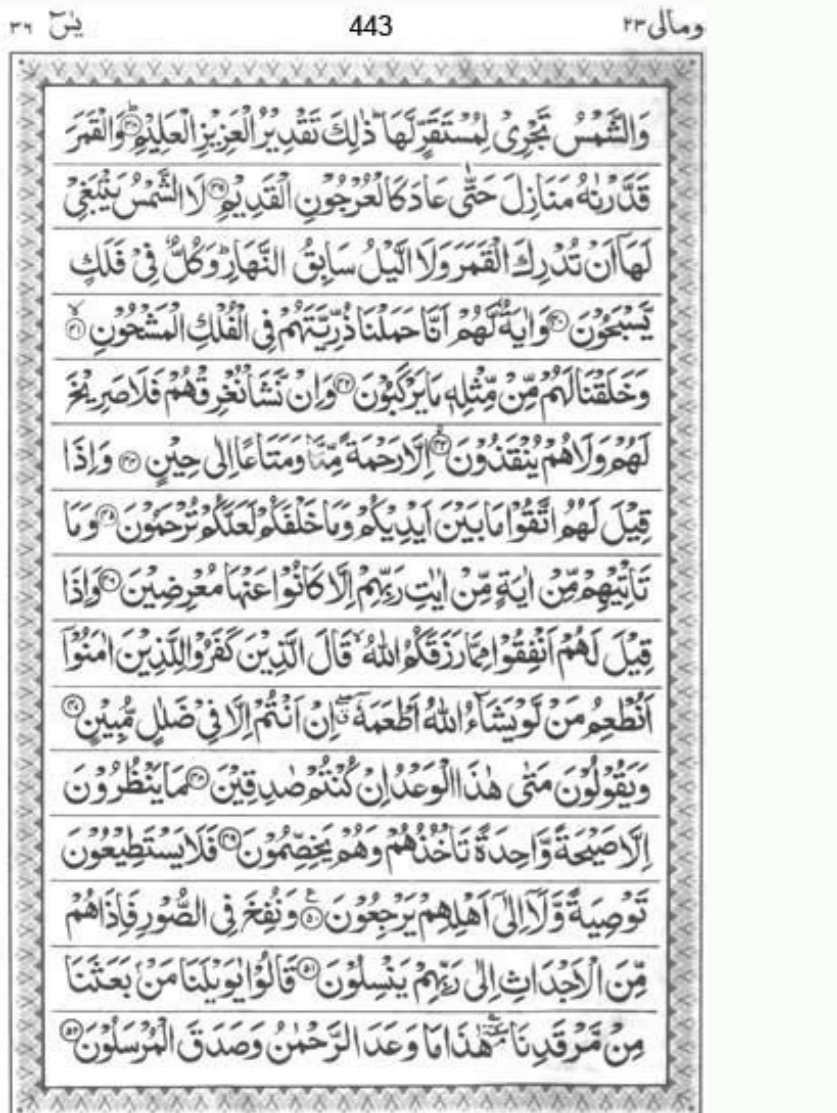 یٰسٓ ۳۶ 443 ومالی ۲۳
وَالشَّمْسُ تَجْرِیْ لِمُسْتَقَرٍّ لَّهَا ؕ ذٰلِكَ تَقْدِیْرُ الْعَزِیْزِ الْعَلِیْمِ ﴿۳۸﴾ؕ وَالْقَمَرَ
قَدَّرْنٰهُ مَنَازِلَ حَتّٰی عَادَ كَالْعُرْجُوْنِ الْقَدِیْمِ ﴿۳۹﴾ لَا الشَّمْسُ یَنْۢبَغِیْ
لَهَاۤ اَنْ تُدْرِكَ الْقَمَرَ وَلَا الَّیْلُ سَابِقُ النَّهَارِ ؕ وَكُلٌّ فِیْ فَلَكٍ
یَّسْبَحُوْنَ ﴿۴۰﴾ وَاٰیَةٌ لَّهُمْ اَنَّا حَمَلْنَا ذُرِّیَّتَهُمْ فِی الْفُلْكِ الْمَشْحُوْنِ ﴿۴۱﴾ۙ
وَخَلَقْنَا لَهُمْ مِّنْ مِّثْلِهٖ مَا یَرْكَبُوْنَ ﴿۴۲﴾ وَاِنْ نَّشَاْ نُغْرِقْهُمْ فَلَا صَرِیْخَ
لَهُمْ وَلَا هُمْ یُنْقَذُوْنَ ﴿۴۳﴾ۙ اِلَّا رَحْمَةً مِّنَّا وَمَتَاعًا اِلٰی حِیْنٍ ﴿۴۴﴾ وَاِذَا
قِیْلَ لَهُمُ اتَّقُوْا مَا بَیْنَ اَیْدِیْكُمْ وَمَا خَلْفَكُمْ لَعَلَّكُمْ تُرْحَمُوْنَ ﴿۴۵﴾ وَمَا
تَاْتِیْهِمْ مِّنْ اٰیَةٍ مِّنْ اٰیٰتِ رَبِّهِمْ اِلَّا كَانُوْا عَنْهَا مُعْرِضِیْنَ ﴿۴۶﴾ وَاِذَا
قِیْلَ لَهُمْ اَنْفِقُوْا مِمَّا رَزَقَكُمُ اللّٰهُ ۙ قَالَ الَّذِیْنَ كَفَرُوْا لِلَّذِیْنَ اٰمَنُوْۤا
اَنُطْعِمُ مَنْ لَّوْ یَشَآءُ اللّٰهُ اَطْعَمَهٗۤ ۖ اِنْ اَنْتُمْ اِلَّا فِیْ ضَلٰلٍ مُّبِیْنٍ ﴿۴۷﴾
وَیَقُوْلُوْنَ مَتٰی هٰذَا الْوَعْدُ اِنْ كُنْتُمْ صٰدِقِیْنَ ﴿۴۸﴾ مَا یَنْظُرُوْنَ
اِلَّا صَیْحَةً وَّاحِدَةً تَاْخُذُهُمْ وَهُمْ یَخِصِّمُوْنَ ﴿۴۹﴾ فَلَا یَسْتَطِیْعُوْنَ
تَوْصِیَةً وَّلَاۤ اِلٰۤی اَهْلِهِمْ یَرْجِعُوْنَ ﴿۵۰﴾ۧ وَنُفِخَ فِی الصُّوْرِ فَاِذَا هُمْ
مِّنَ الْاَجْدَاثِ اِلٰی رَبِّهِمْ یَنْسِلُوْنَ ﴿۵۱﴾ قَالُوْا یٰوَیْلَنَا مَنْۢ بَعَثَنَا
مِنْ مَّرْقَدِنَا ۘ هٰذَا مَا وَعَدَ الرَّحْمٰنُ وَصَدَقَ الْمُرْسَلُوْنَ ﴿۵۲﴾